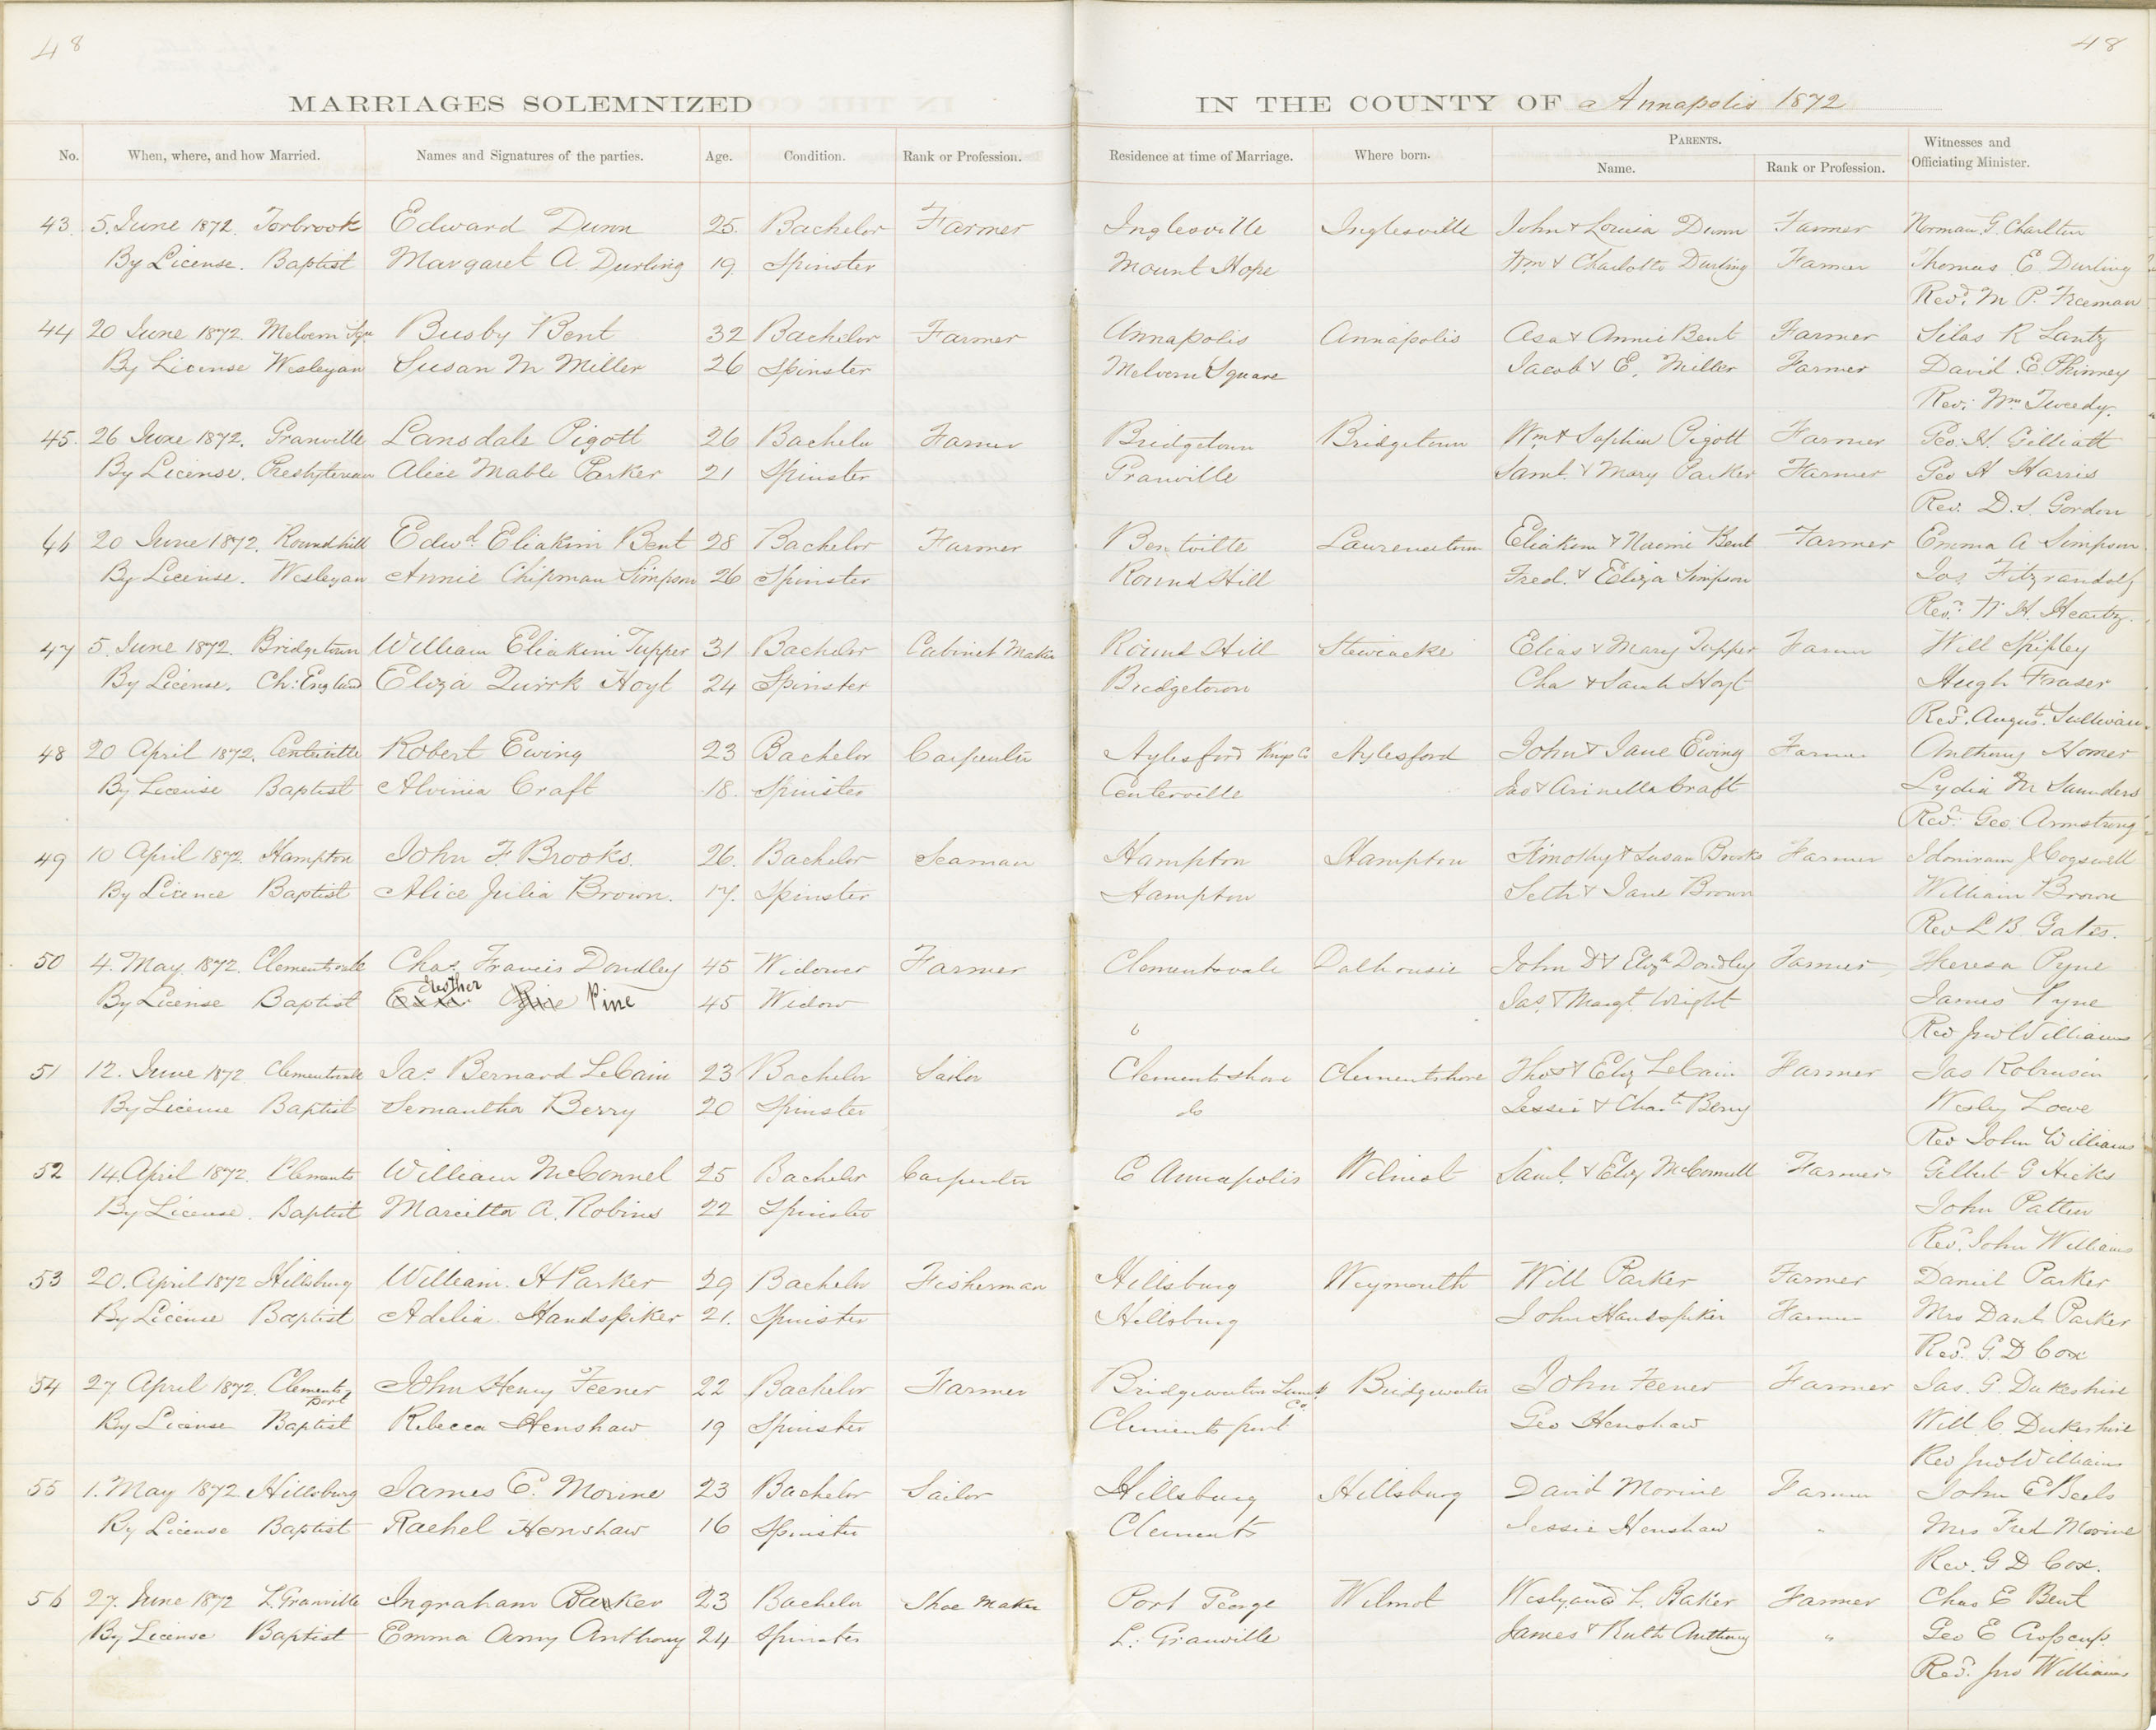 48
48
MARRIAGES SOLEMNIZED IN THE COUNTY OF Annapolis 1872
No. When, where, and how Married. Names and Signatures of the parties. Age. Condition. Rank or Profession. Residence at time of Marriage. Where born. PARENTS. Name. Rank or Profession. Witnesses and Officiating Minister.
43. 5. June 1872. Torbrook Edward Dunn 25. Bachelor Farmer Inglesville Inglesville John & Louisa Dunn Farmer Norman G. Charlton
By License. Baptist Margaret A. Durling 19. Spinster Mount Hope Wm & Charlotte Durling Farmer Thomas E. Durling
Revd. M P. Freeman
44 20 June 1872. Melvern Squ Busby Bent 32 Bachelor Farmer Annapolis Annapolis Asa & Annie Bent Farmer Silas R Lantz
By License Wesleyan Susan M Miller 26 Spinster Melvern Square Jacob & E. Miller Farmer David E. Phinney
Rev. Wm. Tweedy.
45. 26 June 1872. Granville Lansdale Pigott 26 Bachelor Farmer Bridgetown Bridgetown Wm & Sophia Pigott Farmer Geo. H. Gilliatt
By License. Presbyterian Alice Mable Parker 21 Spinster Granville Saml. & Mary Parker Farmer Geo H Harris
Rev. D. S. Gordon
46 20 June 1872. Roundhill Edwd. Eliakim Bent 28 Bachelor Farmer Bentville Lawrencetown Eliakim & Naomi Bent Farmer Emma A Simpson
By License. Wesleyan Annie Chipman Simpson 26 Spinster Round Hill Fred. & Eliza Simpson Jos. Fitzrandolf
Revd. W. H. Heartz.
47 5. June 1872. Bridgetown William Eliakim Tupper 31 Bachelor Cabinet Maker Round Hill Stewiacke Elias & Mary Tupper Farmer Will Shipley
By License. Ch: England Eliza Quirk Hoyt 24 Spinster Bridgetown Cha & Sarah Hoyt Hugh Fraser
Revd. Augus. Sullivan
48 20 April 1872. Centerville Robert Ewing 23 Bachelor Carpenter Aylesford Kings Co Aylesford John & Jane Ewing Farmer Anthony Homer
By License Baptist Alvinia Craft 18. Spinster Centerville Jno & Arinella Craft Lydia M Saunders
Revd. Geo. Armstrong
49 10 April 1872. Hampton John F. Brooks. 26. Bachelor Seaman Hampton Hampton Timothy & Susan Brooks Farmer Idoniram J Cogswell
By License Baptist Alice Julia Brown. 17. Spinster Hampton Seth & Jane Brown William Brown
Rev L B Gates.
50 4. May 1872. Clementsvale Chas. Francis Dondley 45 Widower Farmer Clementsvale Dalhousie John D & Elizth Dondley Farmer Theresa Pyne
By License Baptist Pine 45 Widow Jas. & Margt. Wright James Pyne
Rev Jno Williams
51 12. June 1872 Clementsvale Jas. Bernard LeCain 23 Bachelor Sailor Clementshore Clementshore Thos & Eliz LeCain Farmer Jas Robinson
By License Baptist Semantha Berry 20 Spinster do Jessie & Chate Berry Wesley Lowe
Rev John Williams
52 14. April 1872. Clements William McConnel 25 Bachelor Carpenter Co Annapolis Wilmot Saml. & Eliz McConnell Farmer Gilbert G Hicks
By License. Baptist Marcitta A. Robins 22 Spinster John Patten
Revd. John Williams
53 20. April 1872 Hillsburg William. H Parker 29 Bachelor Fisherman Hillsburg Weymouth Will Parker Farmer Daniel Parker
By License Baptist Adelia Handspiker 21. Spinster Hillsburg John Handspiker Farmer Mrs Danl. Parker
Revd. G. D Cox
54 27 April 1872. Clements port John Henry Feener 22 Bachelor Farmer Bridgewater Lunen Co Bridgewater John Feener Farmer Jas. G. Dukeshire
By License Baptist Rebecca Henshaw 19 Spinster Clements port Geo Henshaw Will C. Dukeshire
Rev Jno Williams
55 1. May 1872 Hillsburg James E. Morine 23 Bachelor Sailor Hillsburg Hillsburg David Morine Farmer John E Beels
By License Baptist Rachel Henshaw 16 Spinster Clements Jessie Henshaw " Mrs Fred Morine
Rev. G D Cox.
56 27. June 1872 L. Granville Ingraham Baker 23 Bachelor Shoe Maker Port George Wilmot Wesly and L. Baker Farmer Chas E Bent
By License Baptist Emma Amy Anthony 24 Spinster L. Granville James & Ruth Anthony " Geo E Croscup.
Revd. Jno Williams